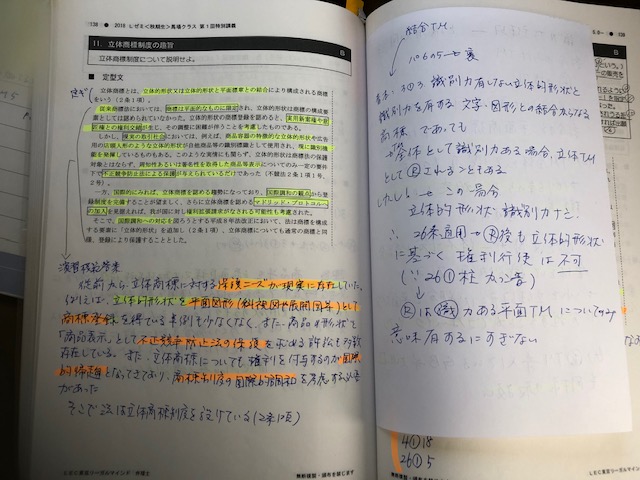 138
2018 Lゼミ<秋期生>馬場クラス 第1回特別講義
11. 立体商標制度の趣旨
B
立体商標制度について説明せよ。
■ 定型文
立体商標とは、立体的形状又は立体的形状と平面標章との結合により構成される商標
をいう(2条1項)。
従来商標法においては、商標は平面的なものに限定され、立体的形状は商標の構成要
素としては認められていなかった。立体的形状の商標登録を認めると、実用新案権や意
匠権との権利交錯が生じ、その調整に困難が伴うことを考慮したものである。
しかし、現実の取引社会においては、例えば、商品容器の特徴的な立体的形状や広告
用の店頭人形のような立体的形状が自他商品等の識別標識として使用され、現に識別機
能を発揮しているものもある。このような実情にも関らず、立体的形状は商標法の保護
対象とはならず、周知性ある商品等表示や著名性ある商品等表示についてのみ一定の要件
下で不正競争防止法による保護が与えられているだけであった(不競法2条1項1号、
2号)。
一方、国際的にみれば、立体商標を認める趨勢になっており、国際調和の観点から登
録制度を完備することが望ましく、さらに立体商標を認めるマドリッド・プロトコルへ
の加入を見据えれば、我が国に対し権利拡張請求がなされる可能性も考慮された。
そこで、国際調和への対応を図ろうとする平成8年法改正において、法は商標を構成
する要素に「立体的形状」を追加し(2条1項)、立体商標についても通常の商標と同
様、登録により保護することとした。
従前から立体商標に対する保護ニーズが現実に存在していた。
例えば、立体的形状を平面図形(斜視図や展開図等)として
商標登録を得ている事例も少なくなく、また、商品の形状を
「商品表示」として不正競争防止法の保護を求める訴訟も多数
存在している。また、立体商標についても権利を付与するのが国際
的趨勢となってきており、商標制度の国際的調和を考慮する必要
があった
そこで法は立体商標制度を設けている(2条1項)
結合TM
識別力有しない立体的形状と
識別力を有する文字・図形との結合からなる
商標であっても
全体として識別力ある場合、立体TM
としてⓇされることもある
しかし、この場合
立体的形状 識別力ナシ
∴ 26条適用→Ⓡ後も立体的形状
に基づく権利行使は不可
(∵ 26①柱
↓
Ⓡは識力ある平面TMについてのみ
意味有するにすぎない
4①18
26①5
無断複製・頒布を禁じます
LEC東京リーガルマインド 弁理士
無断複製・頒布を禁じます
LEC東京リーガルマインド